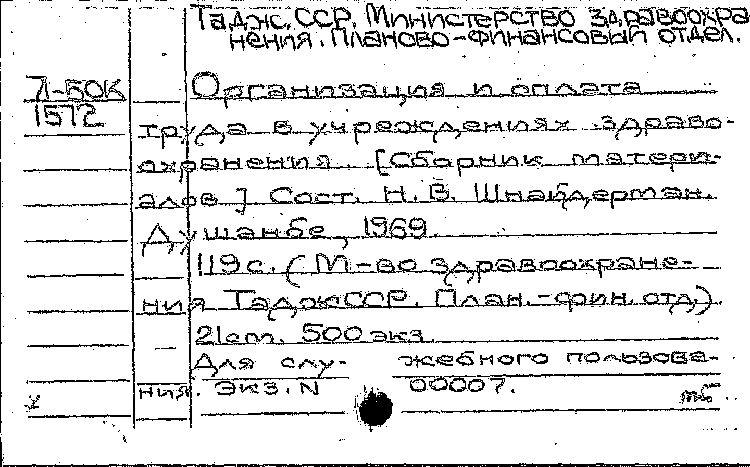 Таджс. ССР. Министерство здравоохра
нения. Планово-финансовый отдел.
Л-50К
1572
Организация и оплата
труда в учреждениях здраво-
охранения. [Сборник матери-
алов] Сост. Н. В. Шнайдерман.
Душанбе, 1969.
119 с. (М-во здравоохране-
ния ТаджССР. План.-фин. отд.)
21 cm. 500 экз.
Для слу- жебного пользова-
ния. Экз. N 00007.